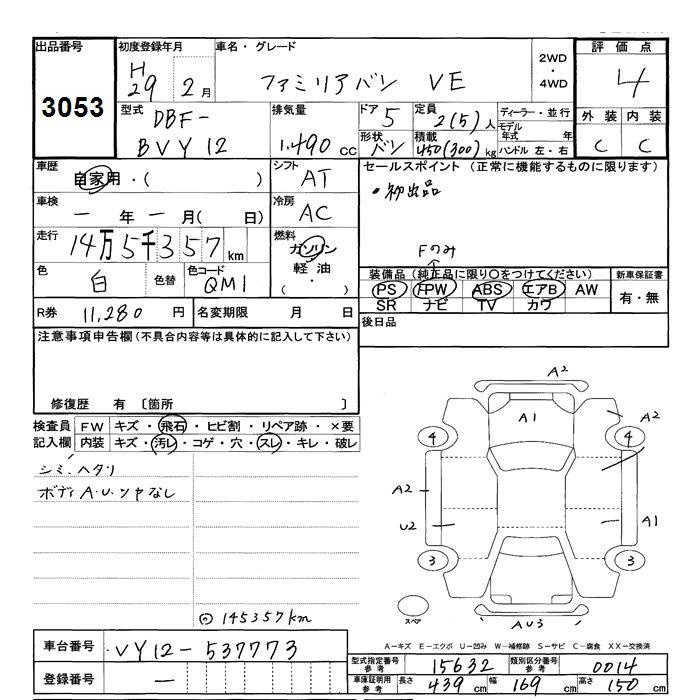 出品番号 初度登録年月 車名・グレード 2WD・4WD 評価点
3053 H29 2月 ファミリアバン VE 4
型式 排気量 ドア 定員 ディーラー・並行 外装 内装
DBF-BVY12 1.490 cc 5 2(5)人 モデル年式 年 C C
形状 積載 ハンドル 左・右
バン 450(300)kg
車歴 自家用・( ) シフト AT セールスポイント (正常に機能するものに限ります)
車検 ー年ー月( 日) 冷房 AC ・初出品
走行 14万5千357km 燃料 ガソリン・軽油・( ) Fのみ
色 白 色替 色コード QM1 装備品 (純正品に限り○をつけてください) 新車保証書
PS FPW ABS エアB AW 有・無
SR ナビ TV カワ
R券 11,280 円 名変期限 月 日 後日品
注意事項申告欄(不具合内容等は具体的に記入して下さい)
修復歴 有 〔箇所 〕
検査員記入欄 FW キズ・飛石・ヒビ割・リペア跡・×要
内装 キズ・汚レ・コゲ・穴・スレ・キレ・破レ
シミ、ヘタリ
ボディA.U.ツヤなし
◎145357km
A2
A1 A2
4 4
A2
U2 A1
3 3
スペア AU3
A−キズ E−エクボ U−凹み W−補修跡 S−サビ C−腐食 XX−交換済
車台番号 VY12-537773
型式指定番号 参考 15632 類別区分番号 参考 0014
登録番号 ー
車庫証明用 参考 長さ 439 cm 幅 169 cm 高さ 150 cm